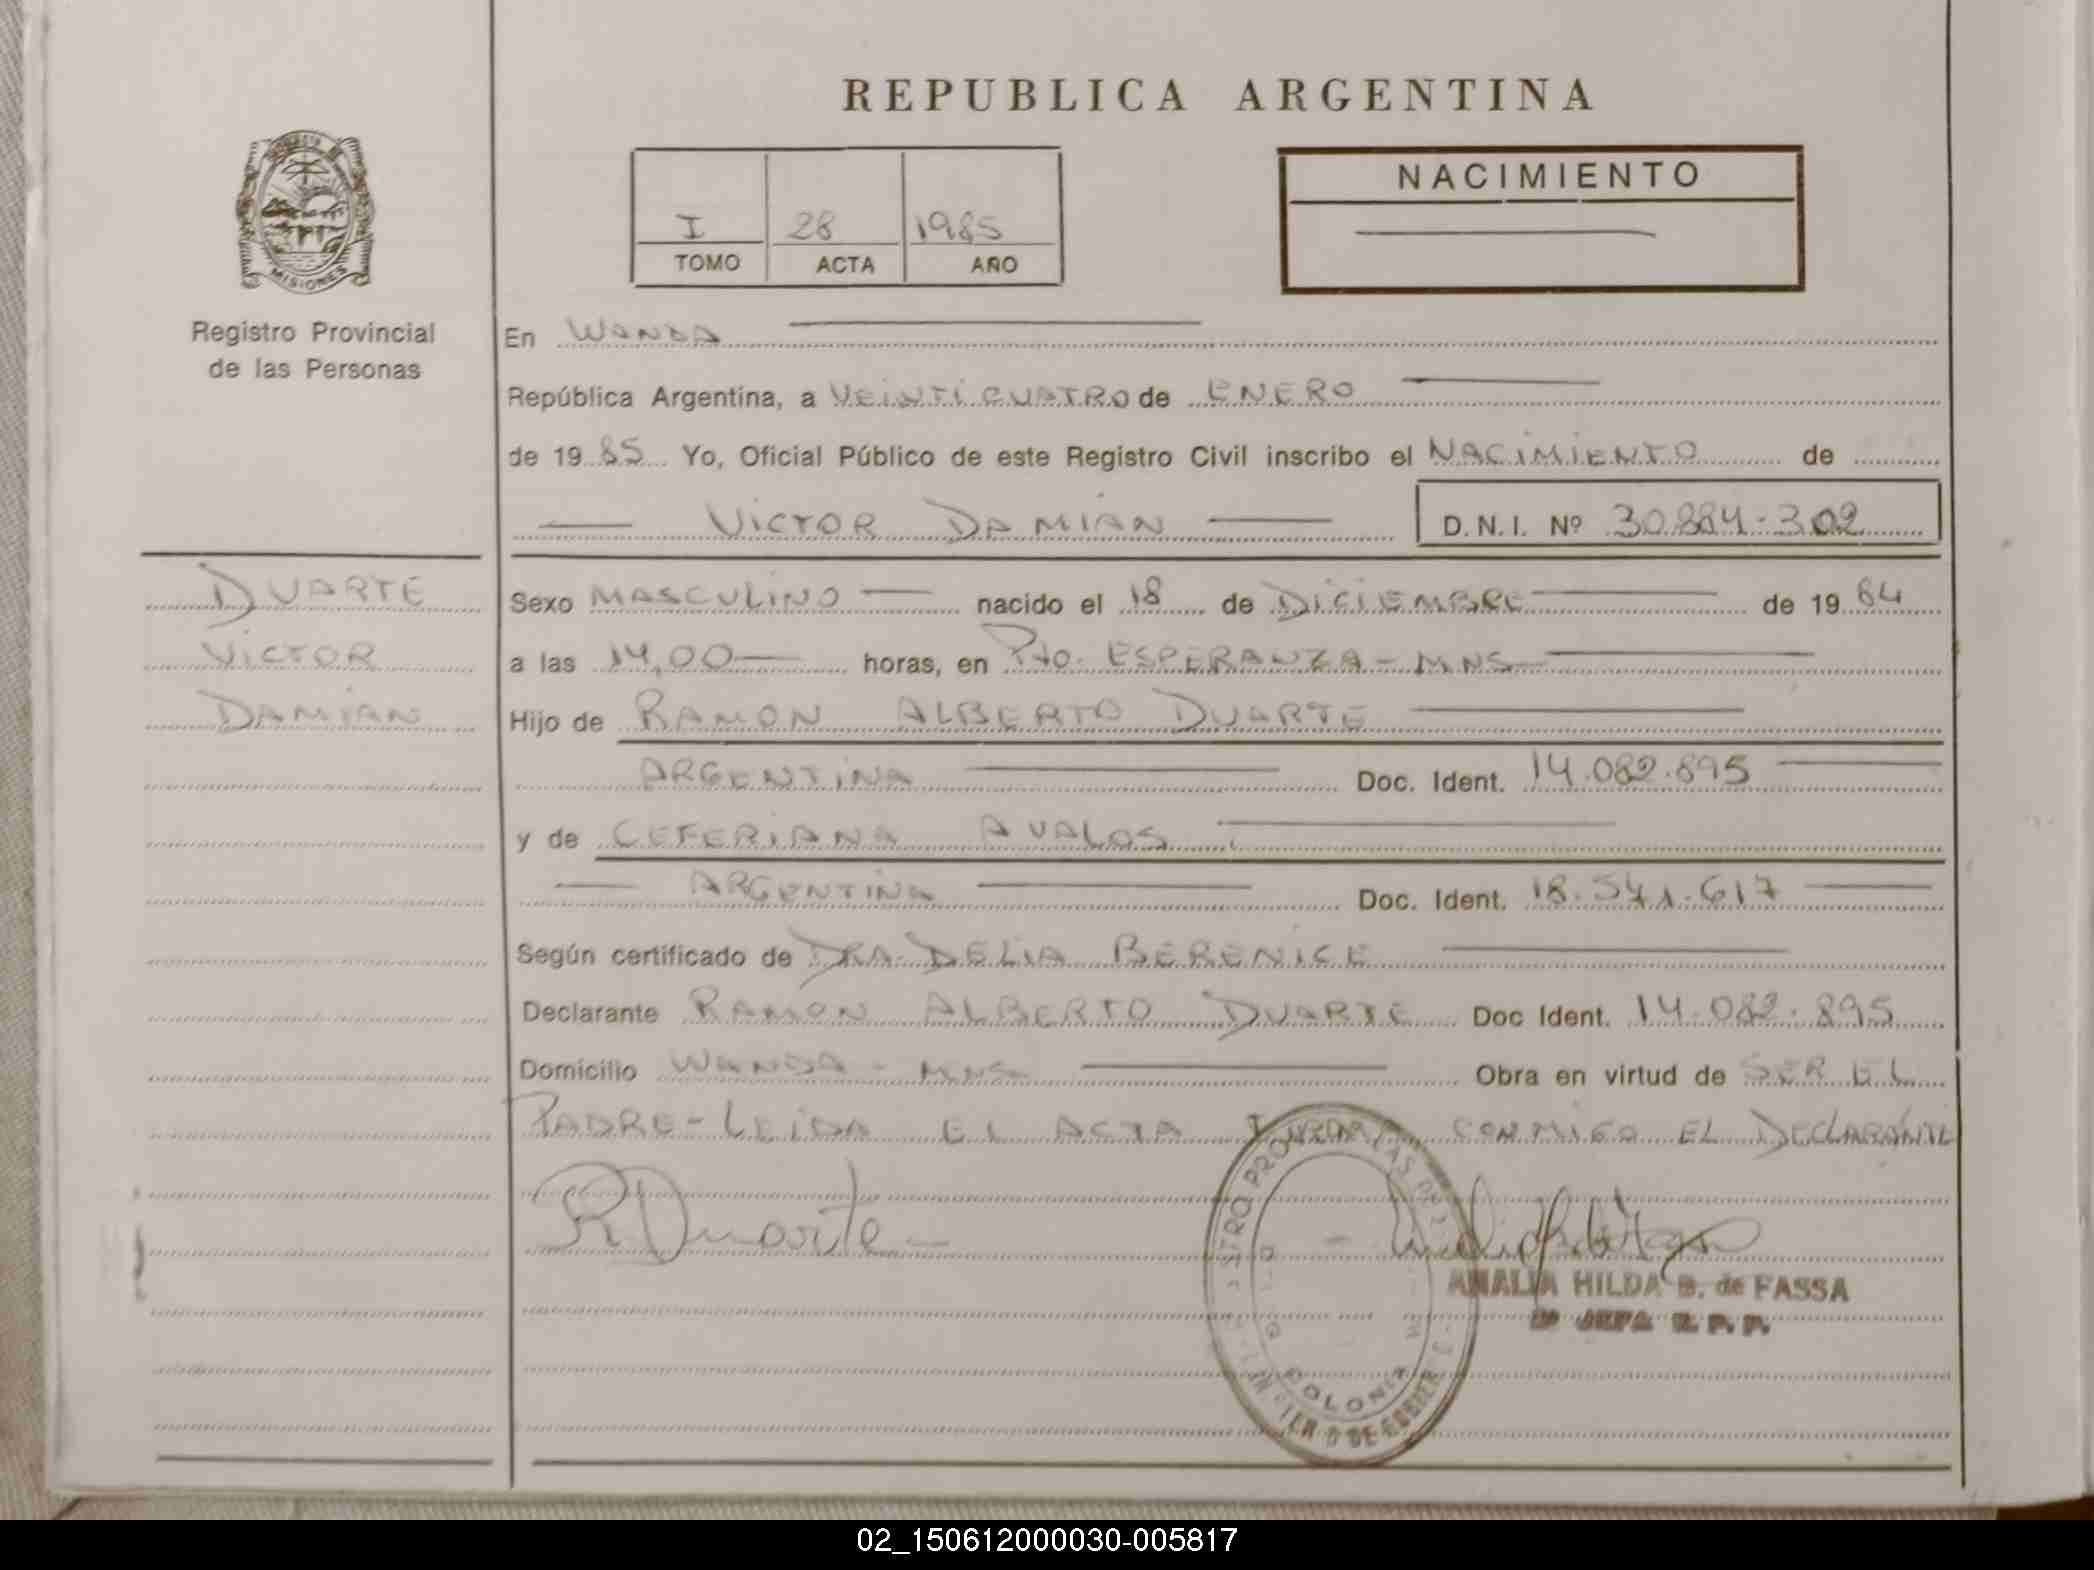 REPUBLICA ARGENTINA
MISIONES
Registro Provincial
de las Personas
I 28 1985
TOMO ACTA AÑO
NACIMIENTO
En WANDA
República Argentina, a VEINTICUATRO de ENERO
de 19 85 Yo, Oficial Público de este Registro Civil inscribo el NACIMIENTO de
VICTOR DAMIAN D.N.I. Nº 30.884.302
DUARTE
VICTOR
DAMIAN
Sexo MASCULINO nacido el 18 de DICIEMBRE de 19 84
a las 14,00 horas, en Pto. ESPERANZA - MNS
Hijo de RAMON ALBERTO DUARTE
ARGENTINA Doc. Ident. 14.082.895
y de CEFERIANA AVALOS
ARGENTINA Doc. Ident. 18.541.617
Según certificado de DRA. DELIA BERENICE
Declarante RAMON ALBERTO DUARTE Doc Ident. 14.082.895
Domicilio WANDA - MNS Obra en virtud de SER EL
PADRE - LEIDA EL ACTA CONMIGO EL DECLARANTE
RDuarte
ANALIA HILDA B. de FASSA
JEFA R. P. P.
COLONIA
02_150612000030-005817